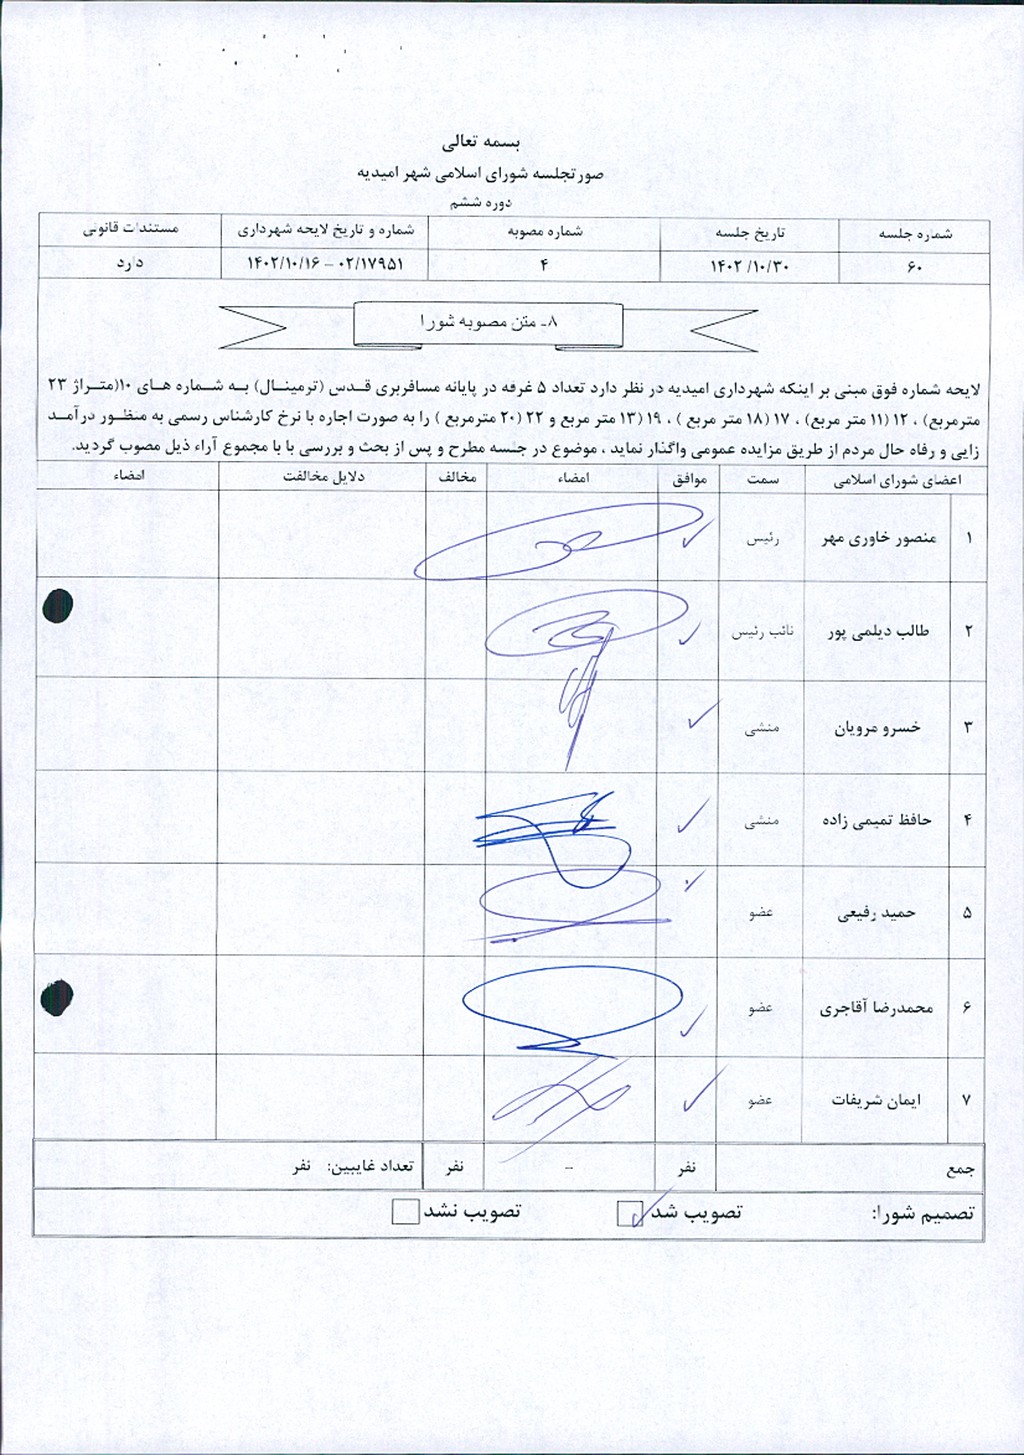 بسمه تعالی
صورتجلسه شورای اسلامی شهر امیدیه
دوره ششم
شماره جلسه	تاریخ جلسه	شماره مصوبه	شماره و تاریخ لایحه شهرداری	مستندات قانونی
۶۰	۱۴۰۲/۱۰/۳۰	۴	۰۲/۱۷۹۵۱ – ۱۴۰۲/۱۰/۱۶	دارد
۸- متن مصوبه شورا
لایحه شماره فوق مبنی بر اینکه شهرداری امیدیه در نظر دارد تعداد ۵ غرفه در پایانه مسافربری قدس (ترمینال) به شماره های ۱۰(متراژ ۲۳
مترمربع) ، ۱۲ (۱۱ متر مربع) ، ۱۷ (۱۸ متر مربع ) ، ۱۹ (۱۳ متر مربع و ۲۲ (۲۰ مترمربع ) را به صورت اجاره با نرخ کارشناس رسمی به منظور درآمد
زایی و رفاه حال مردم از طریق مزایده عمومی واگذار نماید ، موضوع در جلسه مطرح و پس از بحث و بررسی با با مجموع آراء ذیل مصوب گردید.
اعضای شورای اسلامی	سمت	موافق	امضاء	مخالف	دلایل مخالفت	امضاء
۱	منصور خاوری مهر	رئیس
۲	طالب دیلمی پور	نائب رئیس
۳	خسرو مرویان	منشی
۴	حافظ تمیمی زاده	منشی
۵	حمید رفیعی	عضو
۶	محمدرضا آقاجری	عضو
۷	ایمان شریفات	عضو
جمع	نفر	--	نفر	تعداد غایبین: نفر
تصمیم شورا:	تصویب شد	تصویب نشد